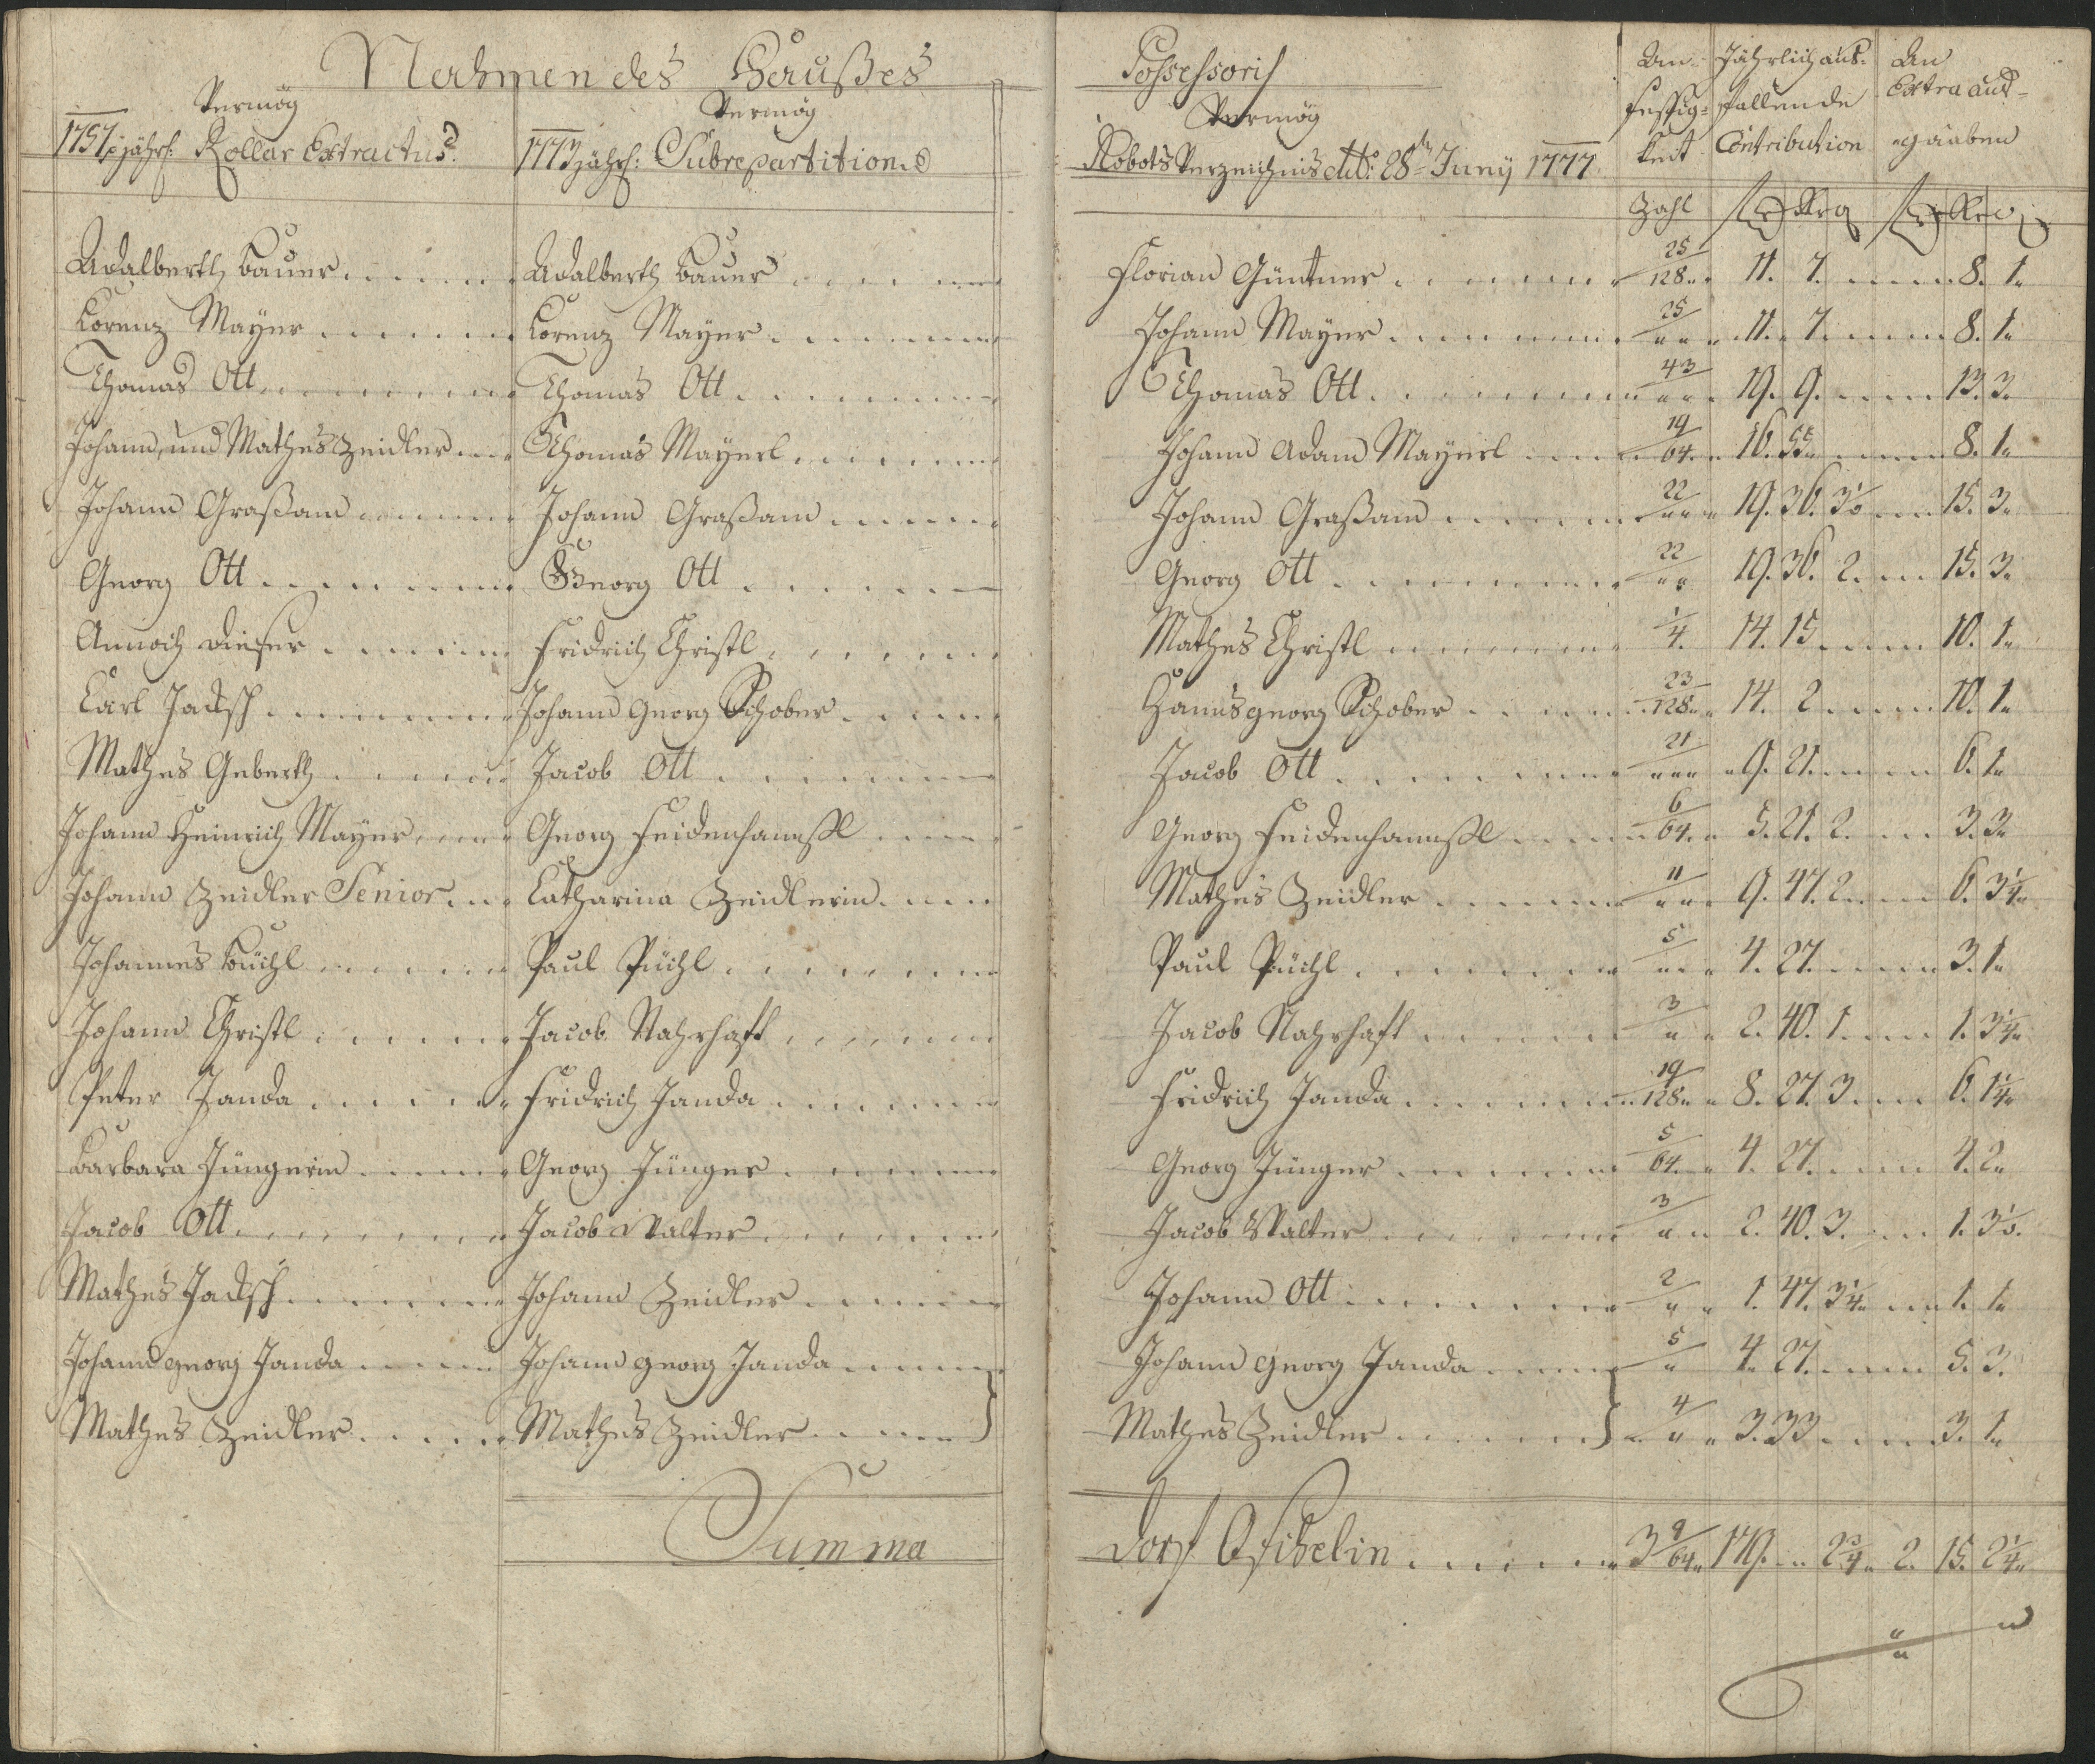 Nahmen des Haußes Possessoris
Vermög Vermög Vermög
1757 jähr: Rollar Extractus. 1773 jähr: Subrepartition. Robots Verzeichnis dtto: 28ten Juny 1777
An- Jährlich aus- An
sessig- fallende Extra aus-
keit Contribution gaaben
Zahl
Adalberth Bauer Adalberth Bauer Florian Güntner 25/128 11. 7. 8. 1.
Lorenz Mayer Lorenz Mayer Johann Mayer 25/" 11. 7. 8. 1.
Thomas Ott Thomas Ott Thomas Ott 43/" 19. 9. 13. 3.
Johann, und Mathes Zeidler Thomas Mayerl Johann Adam Mayerl 19/64 16. 55. 8. 1.
Johann Graßam Johann Graßam Johann Graßam 22/" 19. 36. 3 15. 3.
Georg Ott Georg Ott Georg Ott 22/" 19. 36. 2. 15. 3.
Annoch dieser Fridrich Christl Mathes Christl 1/4. 14. 15 10. 1.
Carl Jacksch Johann Georg Schober Hanns georg Schober 23/128 14. 2 10. 1.
Mathes Geberth Jacob Ott Jacob Ott 21/" 9. 21. 6. 1.
Johann Heinrich Mayer Georg Feidenhannßl Georg Feidenhannßl 6/64 5. 21. 2. 3. 3.
Johann Zeidler Senior Catharina Zeidlerin Mathes Zeidler 11/" 9. 47. 2. 6. 3 1/4
Johannes Büchl Paul Püchl Paul Püchl 5/" 4. 27. 3. 1.
Johann Christl Jacob Nahrhaft Jacob Nahrhaft 3/" 2. 40. 1. 1. 3 1/4
Peter Janda Fridrich Janda Fridrich Janda 19/128 8. 27. 3 6. 1 1/4
Barbara Jüngerin Georg Jünger Georg Jünger 5/64 4. 27. 4. 2.
Jacob Ott Jacob Walter Jacob Walter 3/" 2. 40. 3. 1. 3
Mathes Jacksch Johann Zeidler Johann Ott 2/" 1. 47. 3 1/4 1. 1.
Johann georg Janda Johann georg Janda Johann georg Janda 5/" 4. 27. 5. 3.
Mathes Zeidler Mathes Zeidler Mathes Zeidler 4/" 3. 33 3. 1.
Summa Dorf 3 9/64 179. " 2 3/4 2. 15. 2 1/4